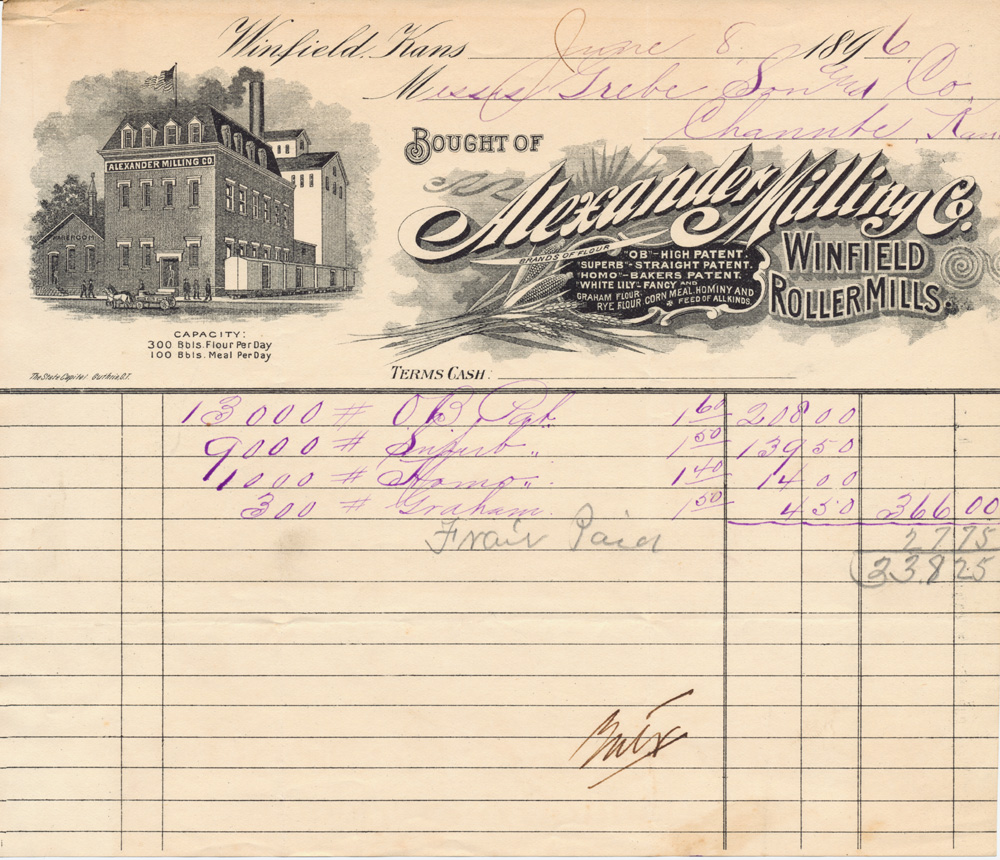 Winfield, Kans June 8. 1896.
Messrs Grebe Son and Co.
Chanute, Kan
BOUGHT OF
Alexander Milling Co.
WINFIELD
ROLLER MILLS.
ALEXANDER MILLING CO
WAREROOM
BRANDS OF FLOUR
"OB"-HIGH PATENT.
"SUPERB"-STRAIGHT PATENT.
"HOMO"-BAKERS PATENT.
"WHITE LILY"-FANCY AND
GRAHAM FLOUR. CORN MEAL, HOMINY AND
RYE FLOUR. & FEED OF ALL KINDS.
CAPACITY:
300 Bbls. Flour Per Day
100 Bbls. Meal Per Day
The State Capital Guthrie, O.T.
TERMS CASH:
13000 # O.B. Pat. 1 60 208 00
9000 # Superb " 1 50 139 50
1000 # Homo " 1 40 14 00
300 # Graham 1 50 4 50 366 00
Paid 27 75
338 25